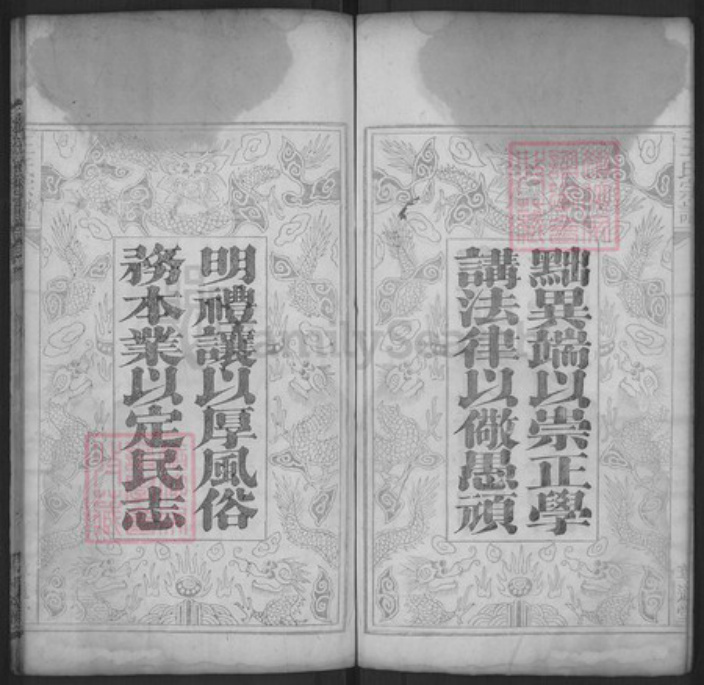 黜異端以崇正學
講法律以儆愚頑
明禮讓以厚風俗
務本業以定民志
FamilySearch